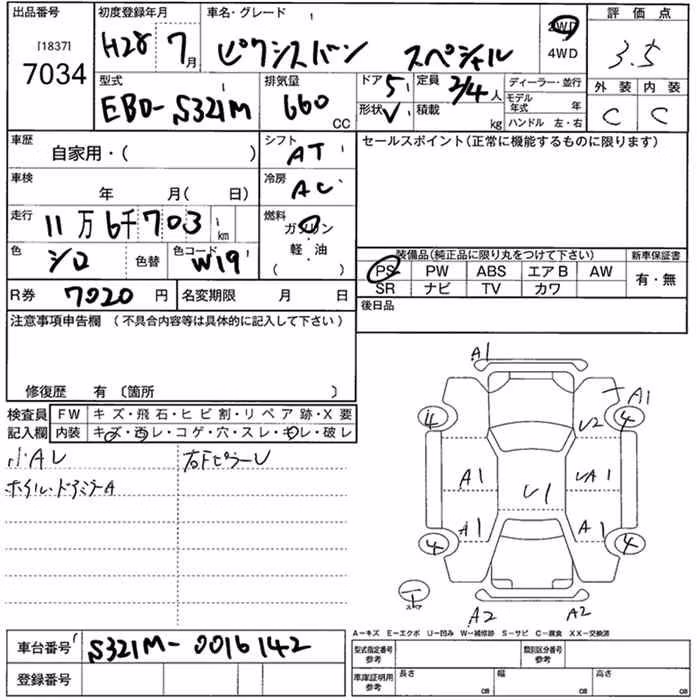 出品番号 初度登録年月 車名・グレード 評価点
[1837]
7034
H28 7月 ピクシスバン スペシャル 2WD 4WD 3.5
型式 排気量 ドア 5 定員 2/4人 ディーラー・並行 外装 内装
EBD-S321M 660 CC 形状 V 積載 kg モデル年式 年 C C
ハンドル 左・右
車歴 自家用・( ) シフト AT セールスポイント(正常に機能するものに限ります)
車検 年 月( 日) 冷房 AC
走行 11万6千703 km 燃料 ガソリン・軽油
色 シロ 色替 色コード W19 装備品(純正品に限り丸をつけて下さい) 新車保証書
PS PW ABS エアB AW 有・無
SR ナビ TV カワ
R券 7020円 名変期限 月 日 後日品
注意事項申告欄 (不具合内容等は具体的に記入して下さい)
修復歴 有 〔箇所 〕
検査員 FW キズ・飛石・ヒビ割・リペア跡・X要
記入欄 内装 キズ・汚レ・コゲ・穴・スレ・キレ・破レ
小AU 右Fピラー U
ホイル・ドアミラーA
A1
A1
4 U2 4
A1 U1 UA1
A1 A1
4 4
A2 A2
A−キズ E−エクボ U−凹み W−補修跡 S−サビ C−腐食 XX−交換済
車台番号 S321M-0016142 型式指定番号 参考 類別区分番号 参考
登録番号 車庫証明用 参考 長さ cm 幅 cm 高さ cm